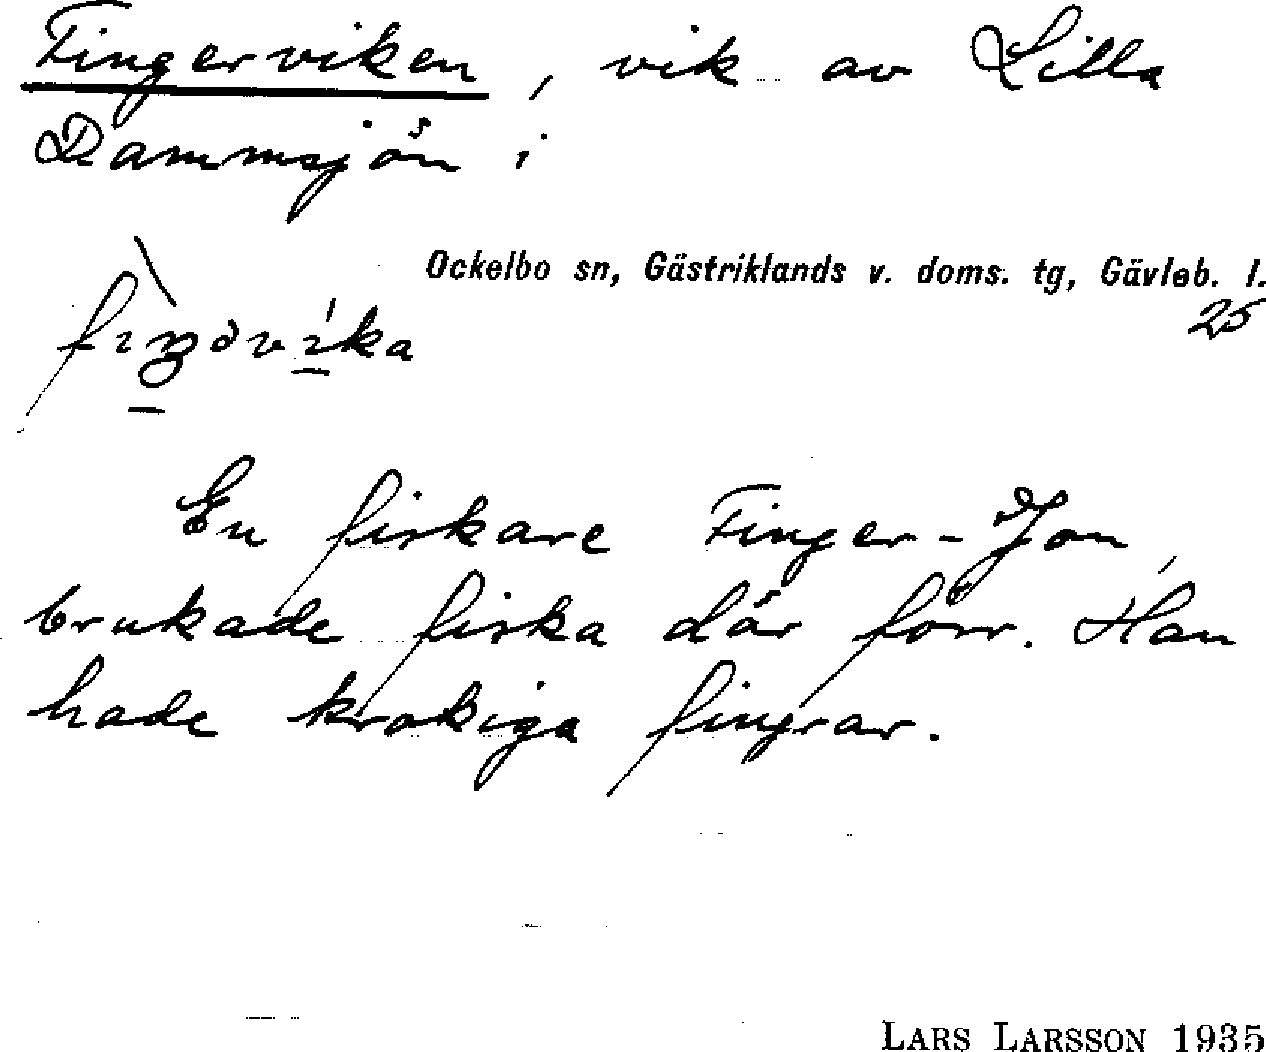 Fingerviken, vik av Lilla
Dammsjön i
Ockelbo sn, Gästriklands v. doms. tg, Gävleb. l.
25
En fiskare Finger-Jon,
brukade fiska där förr. Han
hade krokiga fingrar.
LARS LARSSON 1935